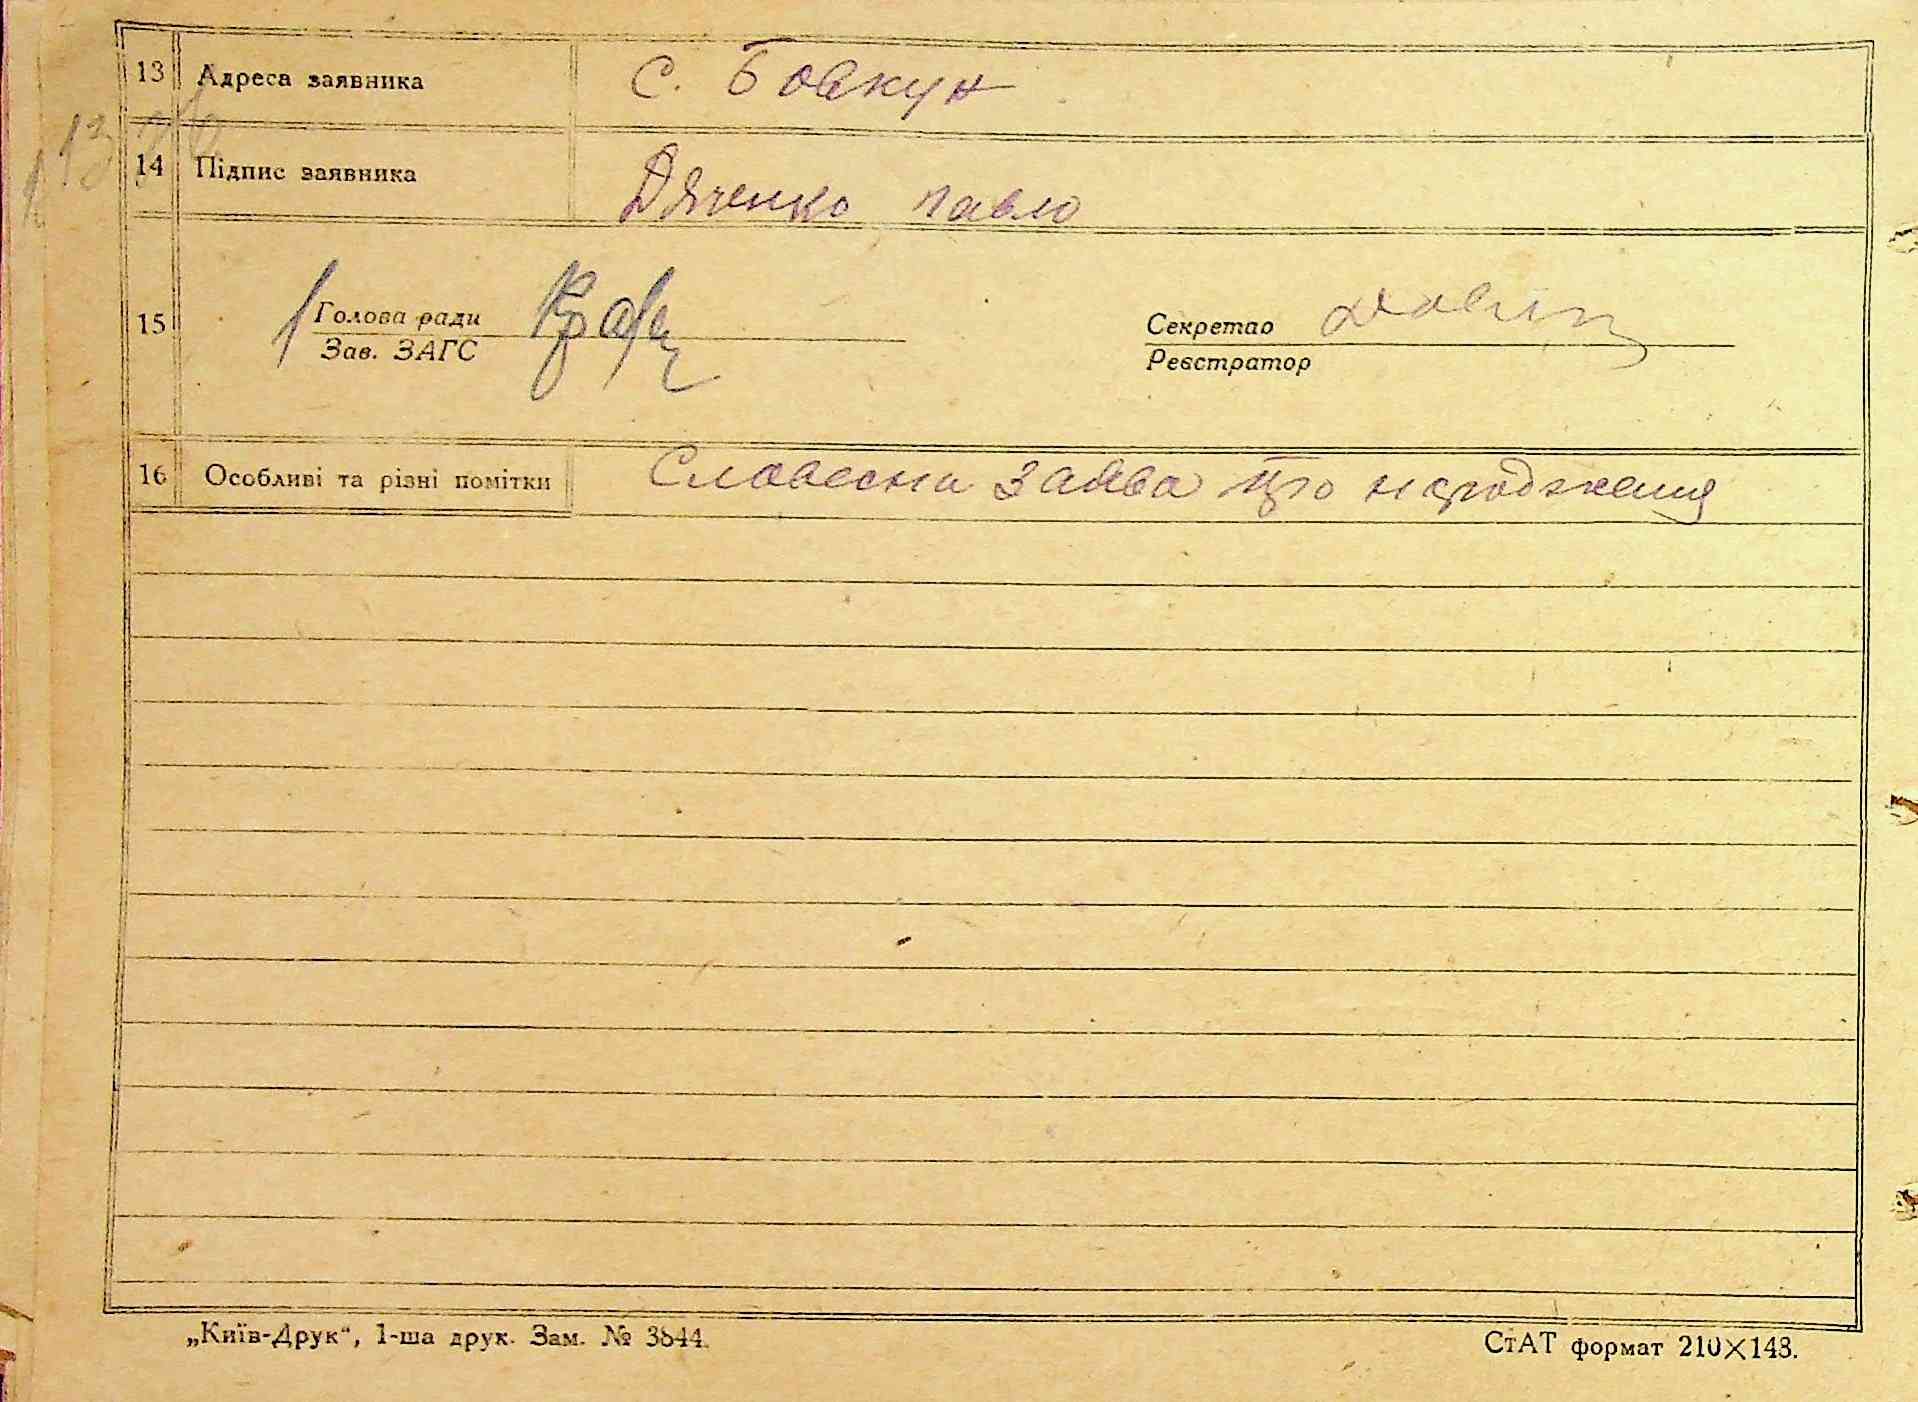 13 Адреса заявника с. Бовкун
14 Підпис заявника Дяченко павло
15 Голова ради Секретар
Зав. ЗАГС Реєстратор
16 Особливі та різні помітки Словесна заява про народження
„Київ-Друк“, 1-ша друк. Зам. № 3844.
СтАТ формат 210×148.